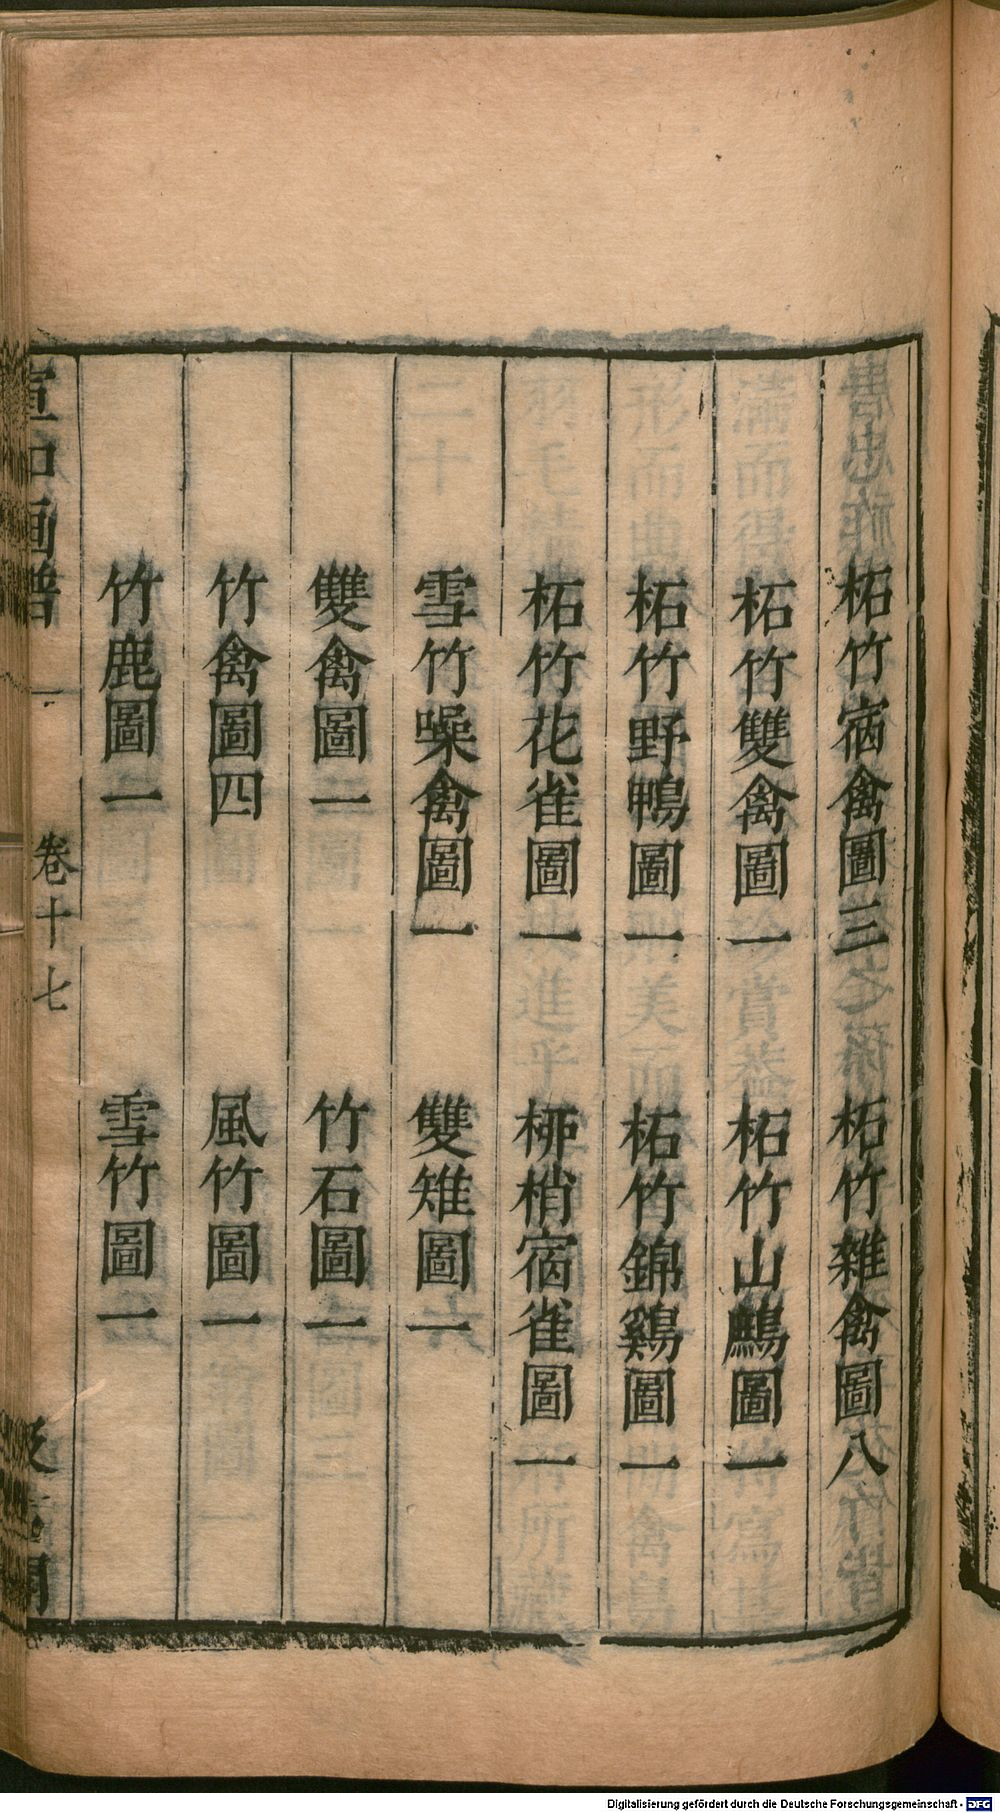 柘竹宿禽圖三　柘竹雜禽圖八
柘竹雙禽圖一　柘竹山鷓圖一
柘竹野鴨圖一　柘竹錦鷄圖一
柘竹花雀圖一　柳梢宿雀圖一
雪竹噪禽圖一　雙雉圖一
雙禽圖一　竹石圖一
竹禽圖四　風竹圖一
竹鹿圖一　雪竹圖一
宣和画譜　卷十七　汲古閣
Digitalisierung gefördert durch die Deutsche Forschungsgemeinschaft - DFG